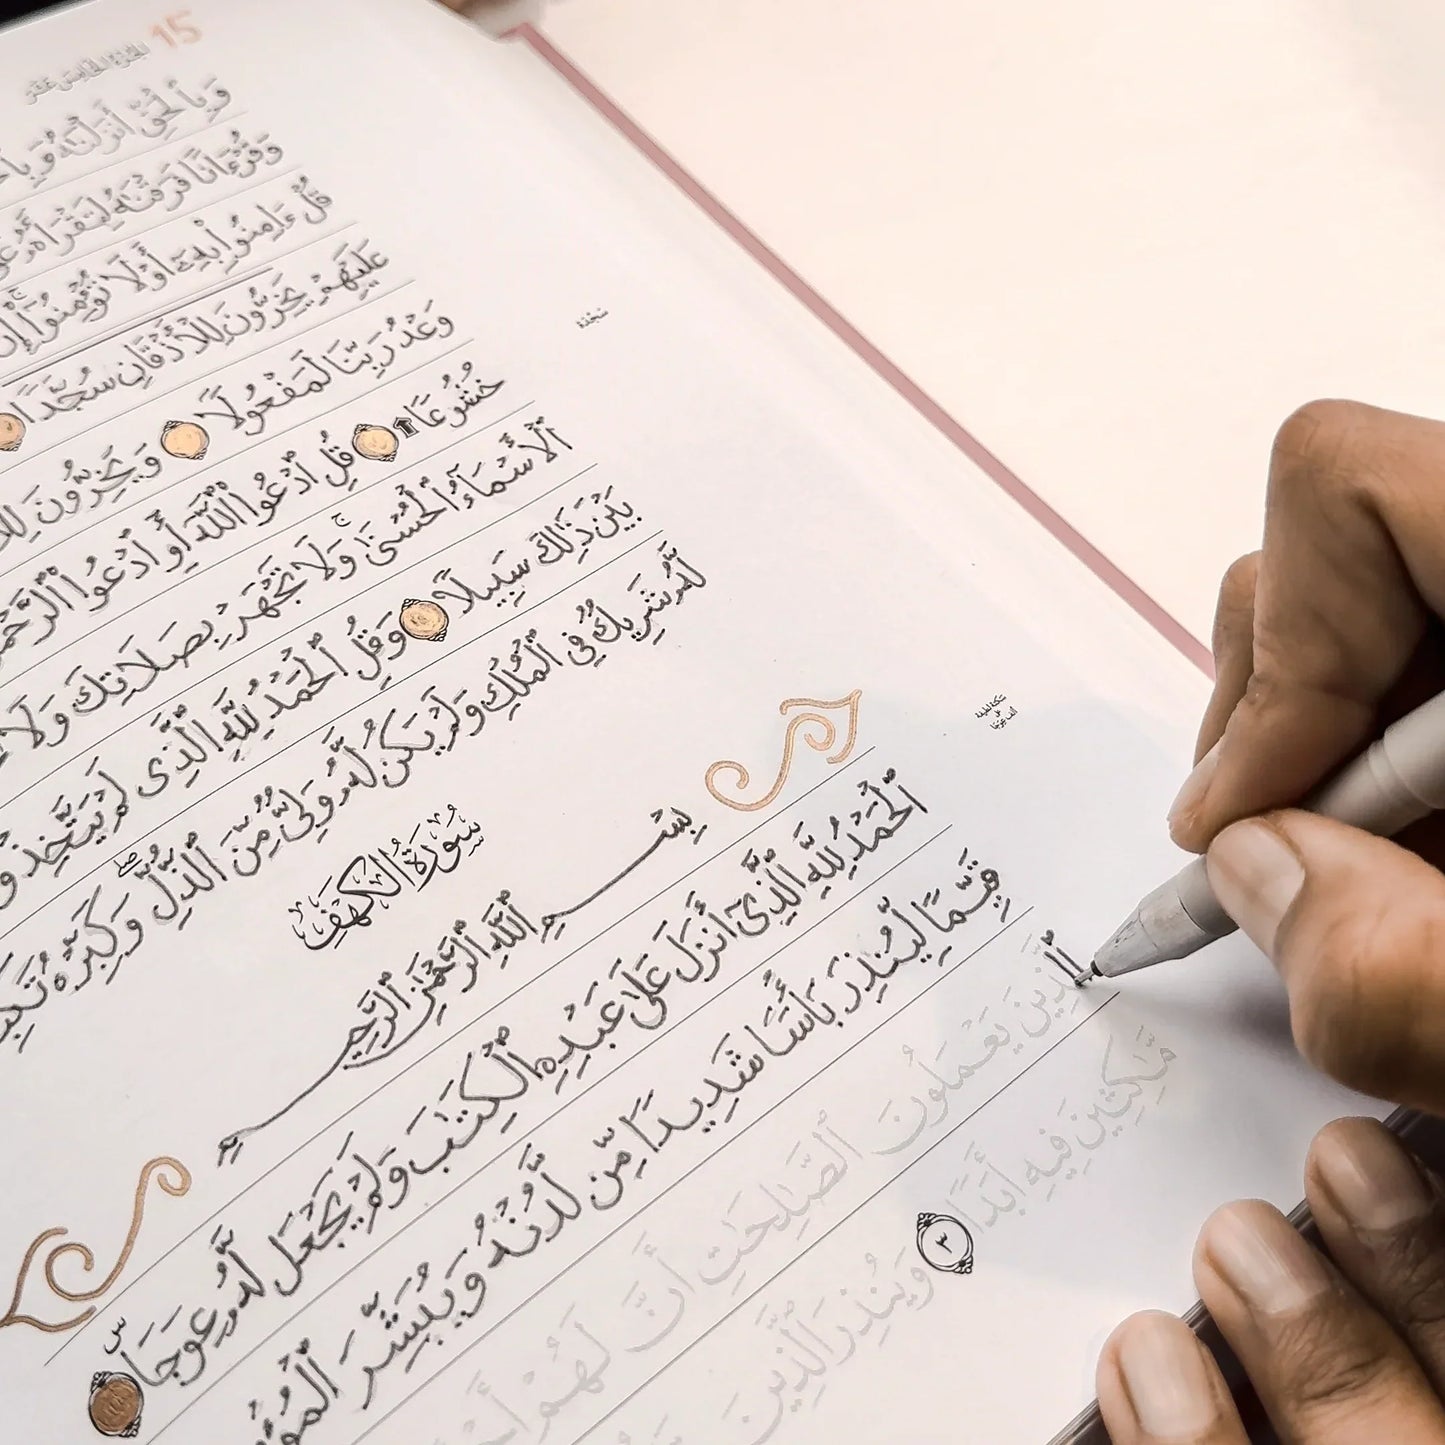 الجزء الخامس عشر 15
وَبِٱلْحَقِّ أَنزَلْنَٰهُ وَبِٱلْ
وَقُرْءَانًا فَرَقْنَٰهُ لِتَقْرَأَهُۥ عَ
قُلْ ءَامِنُوا۟ بِهِۦٓ أَوْ لَا تُؤْمِنُوٓا۟ ۚ إِنَّ
عَلَيْهِمْ يَخِرُّونَ لِلْأَذْقَانِ سُجَّدًا
وَعْدُ رَبِّنَا لَمَفْعُولًا وَيَخِرُّونَ لِلْ
خُشُوعًا قُلِ ٱدْعُوا۟ ٱللَّهَ أَوِ ٱدْعُوا۟ ٱلرَّحْمَ
ٱلْأَسْمَآءُ ٱلْحُسْنَىٰ ۚ وَلَا تَجْهَرْ بِصَلَاتِكَ وَلَا
بَيْنَ ذَٰلِكَ سَبِيلًا وَقُلِ ٱلْحَمْدُ لِلَّهِ ٱلَّذِى لَمْ يَتَّخِذْ وَ
لَّهُۥ شَرِيكٌ فِى ٱلْمُلْكِ وَلَمْ يَكُن لَّهُۥ وَلِىٌّ مِّنَ ٱلذُّلِّ ۖ وَكَبِّرْهُ تَكْبِ
سجدة
سُورَةُ الكَهْفِ
بِسْمِ ٱللَّهِ ٱلرَّحْمَٰنِ ٱلرَّحِيمِ
ٱلْحَمْدُ لِلَّهِ ٱلَّذِىٓ أَنزَلَ عَلَىٰ عَبْدِهِ ٱلْكِتَٰبَ وَلَمْ يَجْعَل لَّهُۥ عِوَجَا ۜ
قَيِّمًا لِّيُنذِرَ بَأْسًا شَدِيدًا مِّن لَّدُنْهُ وَيُبَشِّرَ ٱلْمُؤْ
ٱلَّذِينَ يَعْمَلُونَ ٱلصَّٰلِحَٰتِ أَنَّ لَهُمْ أَجْ
مَّٰكِثِينَ فِيهِ أَبَدًا ٣ وَيُنذِرَ ٱلَّذِينَ